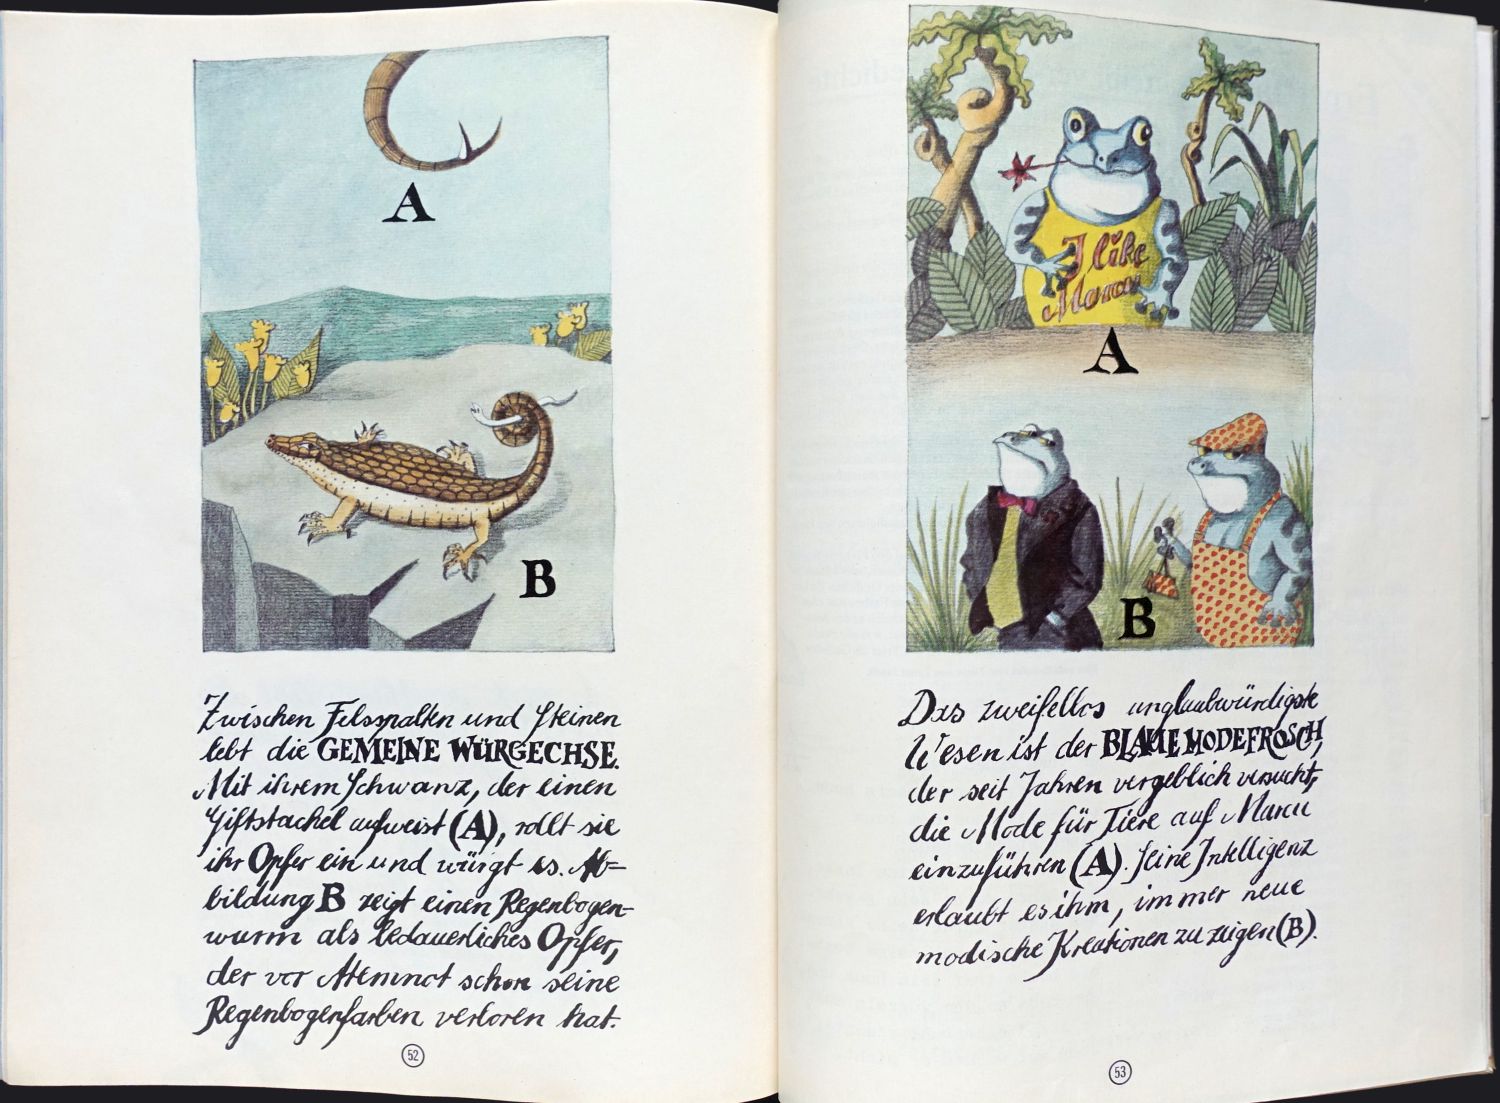 A
B
Zwischen Felsspalten und Steinen
lebt die GEMEINE WÜRGECHSE.
Mit ihrem Schwanz, der einen
Giftstachel aufweist (A), rollt sie
ihr Opfer ein und würgt es. Ab-
bildung B zeigt einen Regenbogen-
wurm als bedauerliches Opfer,
der vor Atemnot schon seine
Regenbogenfarben verloren hat.
52
I like
Maracu
A
B
Das zweifellos unglaubwürdigste
Wesen ist der BLAUE MODEFROSCH,
der seit Jahren vergeblich versucht,
die Mode für Tiere auf Maracu
einzuführen (A). Seine Intelligenz
erlaubt es ihm, immer neue
modische Kreationen zu zeigen (B).
53